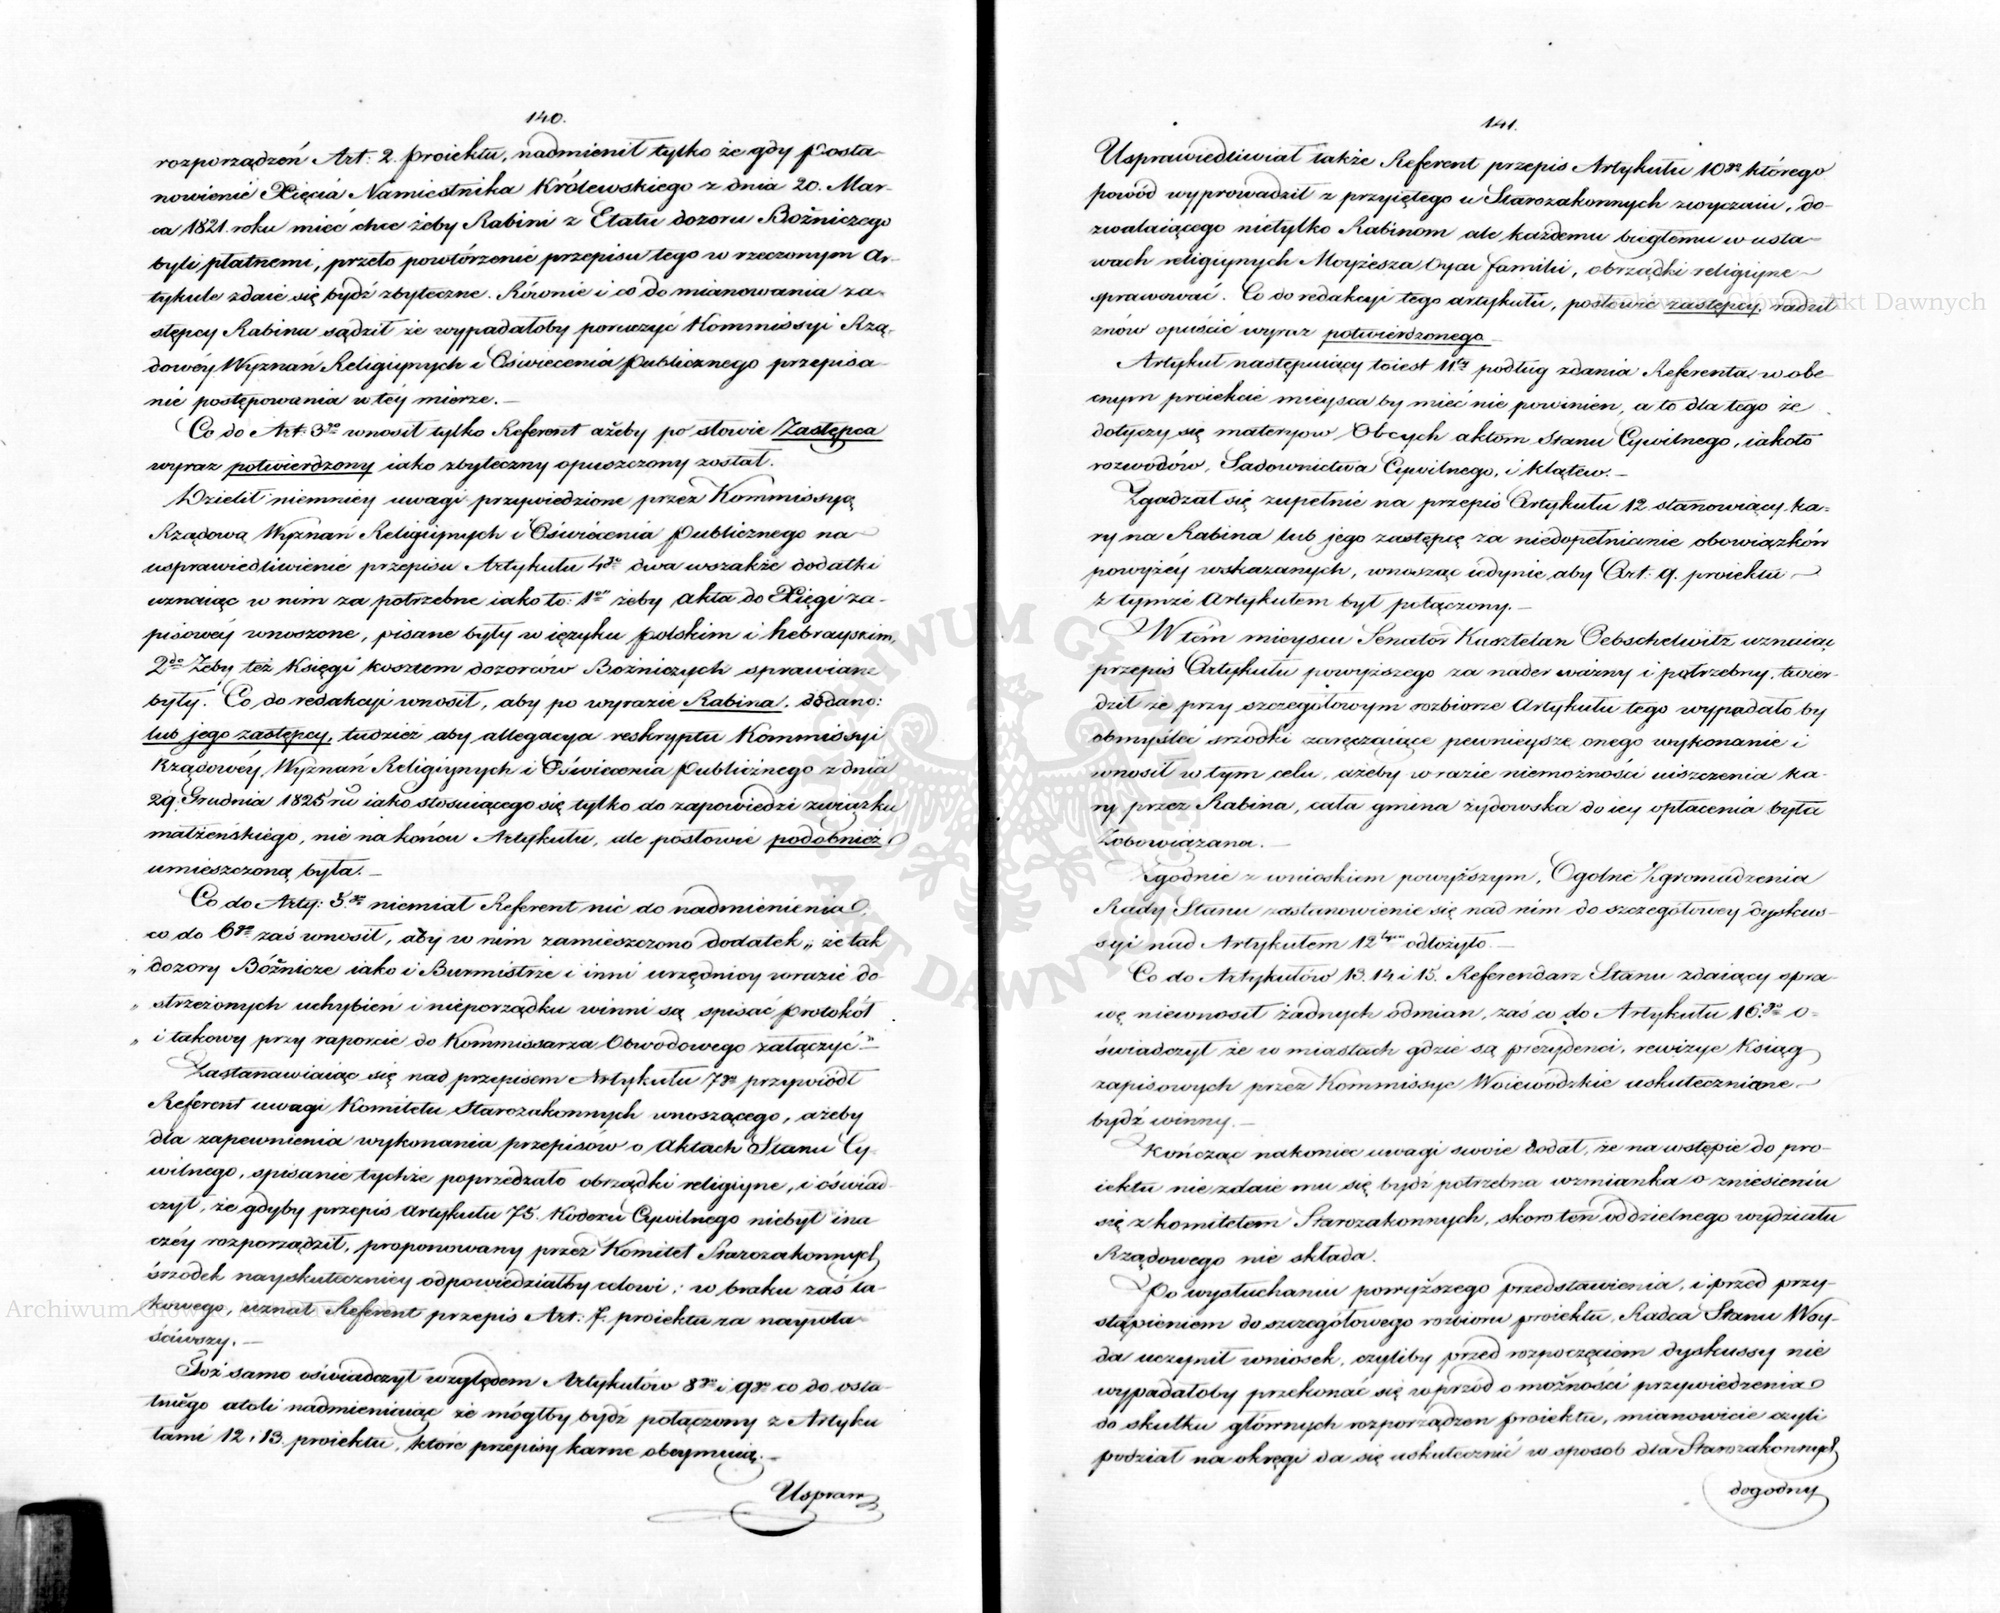 140.
rozporządzeń Art: 2. proiektu, nadmienił tylko że gdy Posta-
nowienie Xięcia Namiestnika Królewskiego z dnia 20. Mar-
ca 1821. roku mieć chce żeby Rabini z Etatu dozoru Bożniczego
byli płatnemi, przeto powtórzenie przepisu tego w rzeczonym Ar-
tykule zdaie się bydź zbyteczne. Równie i co do mianowania za-
stępcy Rabina sądził że wypadałoby poruczyć Kommissyi Rzą-
dowéy Wyznań Religiynych i Oświecenia Publicznego przepisa-
nie postępowania w téy mierze. —
Co do Art: 3go wnosił tylko Referent ażeby po słowie Zastępca
wyraz potwierdzony iako zbyteczny opuszczony został.
Dzielił niemniey uwagi przywiedzione przez Kommissyą
Rządową Wyznań Religiynych i Oświecenia Publicznego na
usprawiedliwienie przepisu Artykułu 4go dwa wszakże dodatki
uznaiąc w nim za potrzebne iako to: 1o żeby Akta do Xięgi za-
pisowéy wnoszone, pisane były w ięzyku polskim i hebrayskim,
2do Żeby też Księgi kosztem dozorców Bożniczych sprawiane
były. Co do redakcyi wnosił, aby po wyrazie Rabina, dodano:
lub jego zastępcy, tudzież aby allegacya reskryptu Kommissyi
Rządowéy Wyznań Religiynych i Oświecenia Publicznego z dnia
29. Grudnia 1825 ru iako stosuiącego się tylko do zapowiedzi związku
małżeńskiego, nie na końcu Artykułu, ale po słowie podobnież
umieszczoną była. —
Co do Arty: 5.go niemiał Referent nic do nadmienienia,
co do 6go zaś wnosił, aby w nim zamieszczono dodatek „że tak
„ dozory Bóżnicze iako i Burmistrze i inni urzędnicy w razie do-
„ strzeżonych uchybień i nieporządku winni są spisać protokół
„ i takowy przy raporcie do Kommissarza Obwodowego załączyć“ —
Zastanawiaiąc się nad przepisem Artykułu 7go przywiódł
Referent uwagi Komitetu Starozakonnych wnoszącego, ażeby
dla zapewnienia wykonania przepisów o Aktach Stanu Cy-
wilnego, spisanie tychże poprzedzało obrządki religiyne, i oświad-
czył, że gdyby przepis Artykułu 75. Kodexu Cywilnego niebył ina
czéy rozporządził, proponowany przez Komitet Starozakonnych
środek nayskuteczniey odpowiedziałby celowi; w braku zaś ta-
kowego, uznał Referent przepis Art: 7. proiektu za naywła-
ściwszy. —
Toż samo oświadczył względem Artykułów 8go i 9go co do osta-
tniego atoli nadmieniaiąc że mógłby bydź połączony z Artyku
łami 12 i 13. proiektu, które przepisy karne obeymuią. —
Uspraw
141.
Usprawiedliwiał także Referent przepis Artykułu 10go którego
powód wyprowadził z przyiętego u Starozakonnych zwyczaiu, do-
zwalaiącego nietylko Rabinom ale każdemu biegłemu w usta-
wach religiynych Moyżesza Oycu familii, obrządki religiyne
sprawować. Co do redakcyi tego artykułu, po słowie zastępcy, radził
znów opuścić wyraz potwierdzonego —
Artykuł następuiący toiest 11ty podług zdania Referenta w obe-
cnym proiekcie mieysca by mieć nie powinien, a to dla tego że
dotyczy się materyow Obcych aktom Stanu Cywilnego, iakoto
rozwodów, Sadownictwa Cywilnego, i klątew. —
Zgadzał się zupełnie na przepis Artykułu 12. stanowiący ka-
ry na Rabina lub jego zastępcę za niedopełnianie obowiązków
powyżéy wskazanych, wnosząc iedynie aby Art: 9. proiektu
z tymże Artykułem był połączony. —
W tém mieyscu Senator Kasztelan Oebschelwitz uznaiąc
przepis Artykułu powyższego za nader ważny i potrzebny, twier-
dził że przy szczegółowym rozbiorze Artykułu tego wypadało by
obmyśleć srzodki zaręczaiące pewnieysze onego wykonanie i
wnosił w tym celu, ażeby w razie niemożności uiszczenia ka-
ry przez Rabina, cała gmina żydowska do iey opłacenia była
Zobowiązana. —
Zgodnie z wnioskiem powyższym, Ogolne Zgromadzenia
Rady Stanu zastanowienie się nad nim do szczegółowey dyskus-
syi nad Artykułem 12tym odłożyło. —
Co do Artykułów 13. 14. i 15. Referendarz Stanu zdaiący spra-
wę niewnosił żadnych odmian, zaś co do Artykułu 16.go o-
świadczył że w miastach gdzie są prezydenci, rewizye Ksiąg
zapisowych przez Kommissye Woiewódzkie uskuteczniane
bydź winny. —
Kończąc nakoniec uwagi swoie dodał, że na wstępie do pro-
iektu nie zdaie mu się bydź potrzebna wzmianka o zniesieniu
się z komitetem Starozakonnych, skoro ten oddzielnego wydziału
Rządowego nie składa.
Po wysłuchaniu powyższego przedstawienia, i przed przy-
stąpieniem do szczegółowego rozbioru proiektu, Radca Stanu Woy-
da uczynił wniosek, czyliby przed rozpoczęciem dyskussyi nie
wypadałoby przekonać się wprzód o możności przywiedzenia
do skutku głównych rozporządzeń proiektu, mianowicie czyli
podział na okręgi da się uskutecznić w sposob dla Starozakonnych
dogodny
Archiwum Główne Akt Dawnych